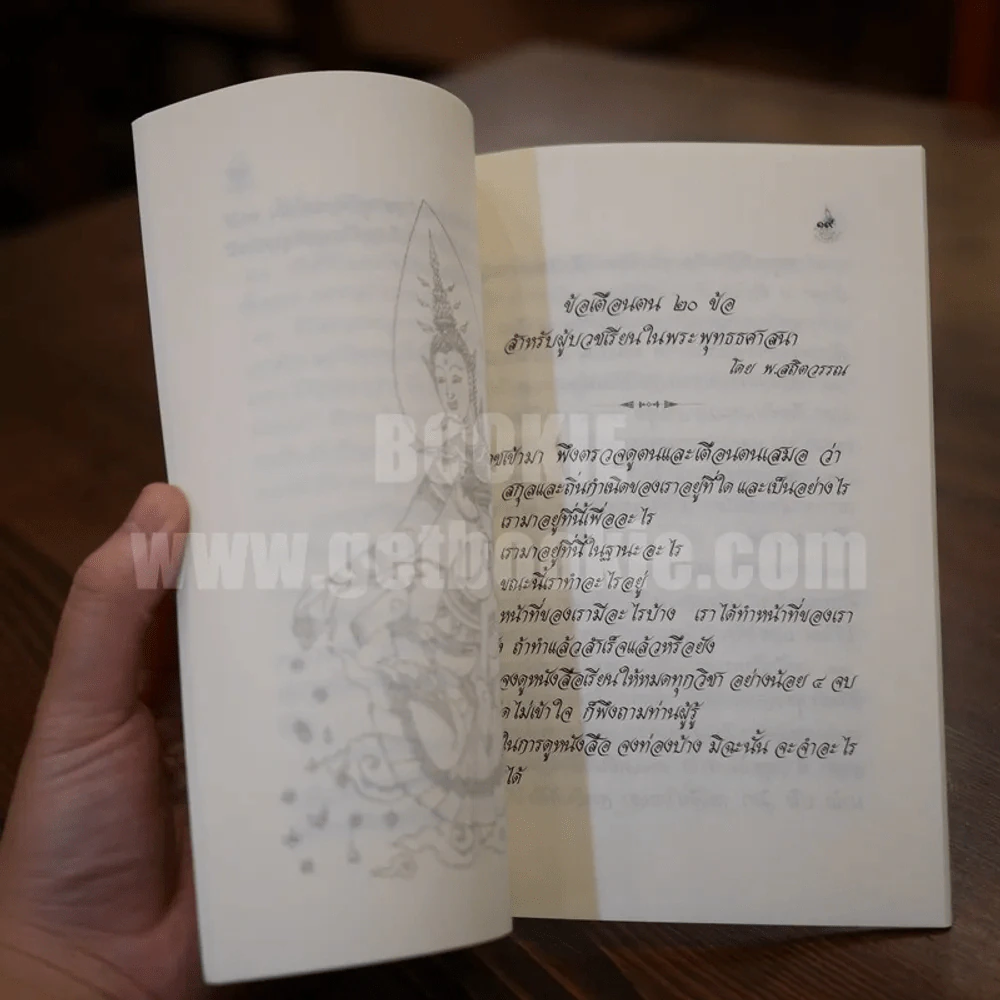 ๑๙
ข้อเตือนตน ๒๐ ข้อ
สำหรับผู้บวชเรียนในพระพุทธธศาสนา
โดย พ.สถิตวรรณ
BOOKIE
เข้ามา พึงตรวจดูตนและเตือนตนเสมอ ว่า
สกุลและถิ่นกำเนิดของเราอยู่ที่ใด และเป็นอย่างไร
เรามาอยู่ที่นี้เพื่ออะไร
www.getbookie.com
เรามาอยู่ที่นี้ในฐานะอะไร
ขณะนี้เราทำอะไรอยู่
หน้าที่ของเรามีอะไรบ้าง เราได้ทำหน้าที่ของเรา
ถ้าทำแล้วสำเร็จแล้วหรือยัง
จงดูหนังสือเรียนให้หมดทุกวิชา อย่างน้อย ๔ จบ
ไม่เข้าใจ ก็พึงถามท่านผู้รู้
ในการดูหนังสือ จงท่องบ้าง มิฉะนั้น จะจำอะไร
ได้